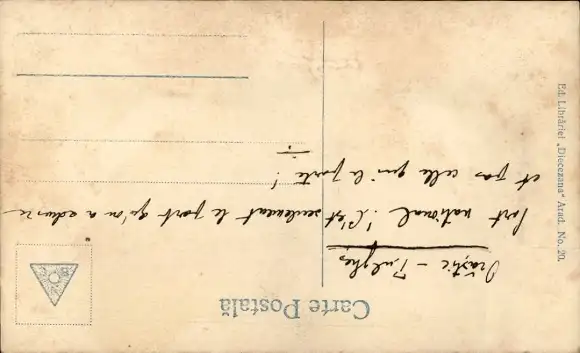 Carte Poștală
Orăștie – Tulgheș
Port national! C'est seulement le port qu'on admire
et pas celle qui le porte!
Ed: Librăriei „Diecezana" Arad. No. 20.